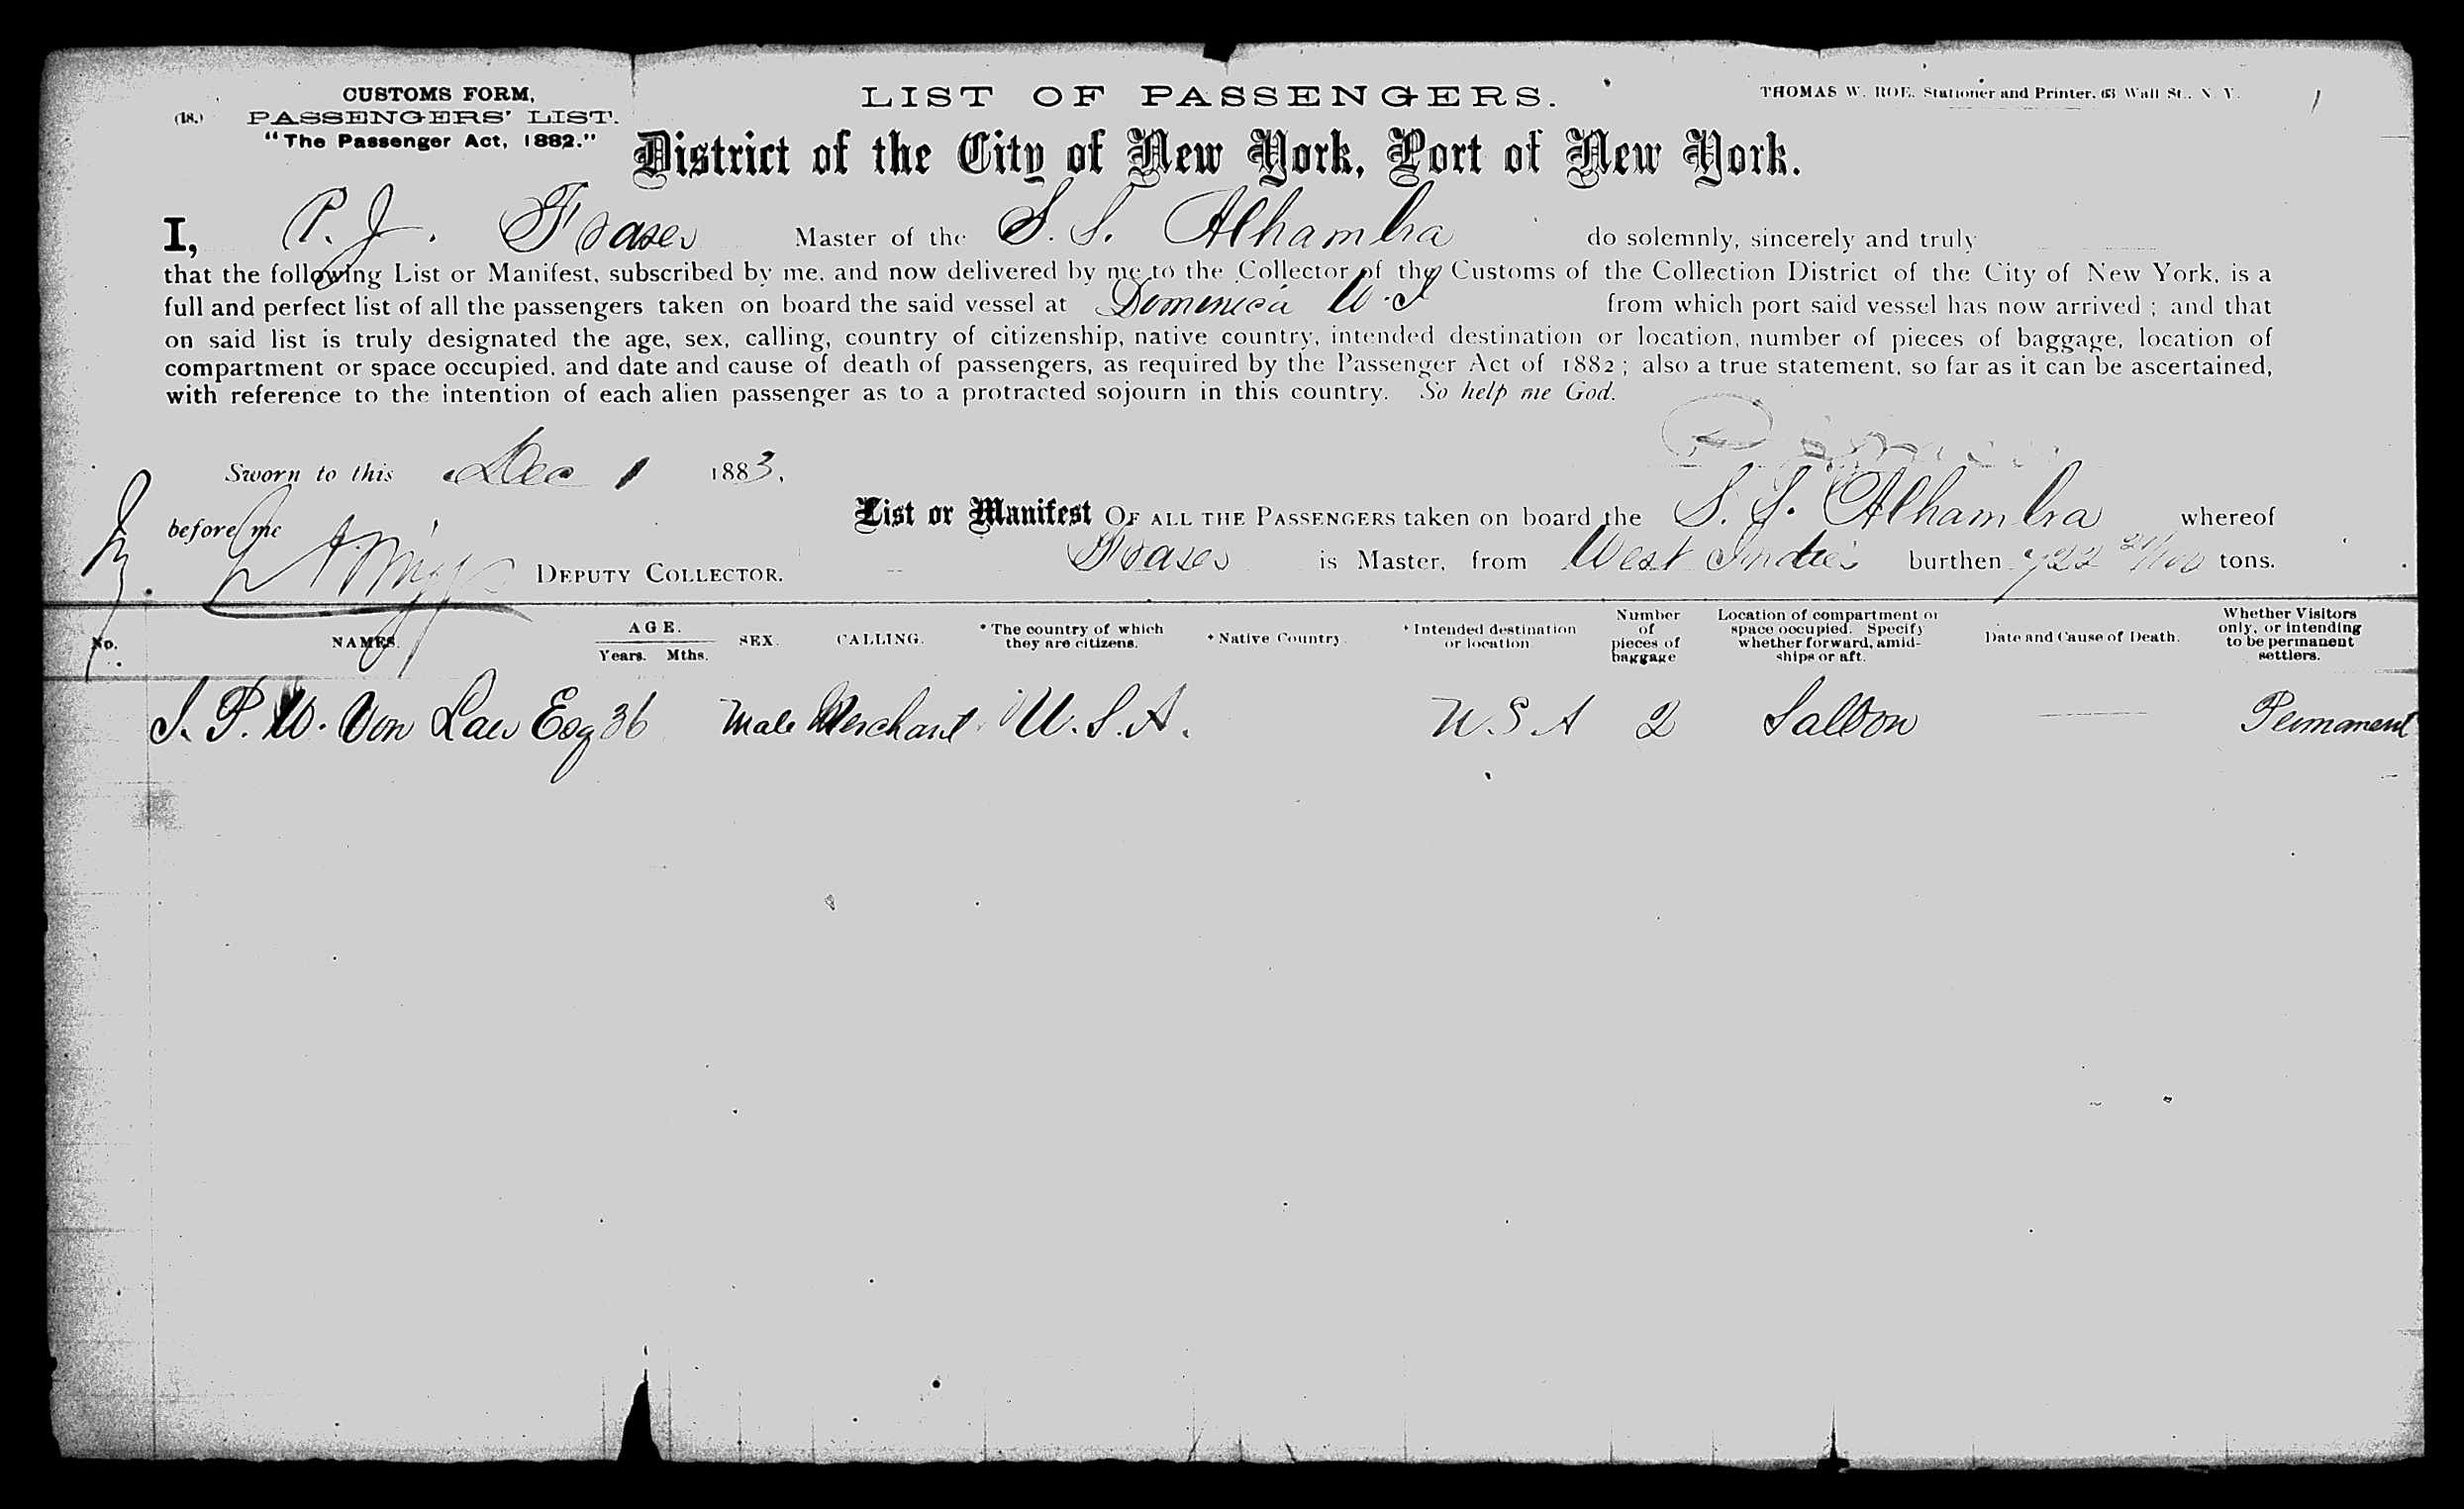 CUSTOMS FORM,
(18.) PASSENGERS' LIST.
"The Passenger Act, 1882."
LIST OF PASSENGERS.
THOMAS W. ROE, Stationer and Printer, 63 Wall St., N. Y.
1
District of the City of New York, Port of New York.
I, P. J. Fraser Master of the S. S. Alhambra do solemnly, sincerely and truly
that the following List or Manifest, subscribed by me, and now delivered by me to the Collector of the Customs of the Collection District of the City of New York, is a
full and perfect list of all the passengers taken on board the said vessel at Domenica W. I from which port said vessel has now arrived ; and that
on said list is truly designated the age, sex, calling, country of citizenship, native country, intended destination or location, number of pieces of baggage, location of
compartment or space occupied, and date and cause of death of passengers, as required by the Passenger Act of 1882 ; also a true statement, so far as it can be ascertained,
with reference to the intention of each alien passenger as to a protracted sojourn in this country. So help me God.
Sworn to this Dec 1 1883,
before me
DEPUTY COLLECTOR.
List or Manifest OF ALL THE PASSENGERS taken on board the S. S. Alhambra whereof
Fraser is Master, from West Indies burthen tons.
No. NAMES. AGE. Years. Mths. SEX. CALLING. * The country of which they are citizens. * Native Country. * Intended destination or location Number of pieces of baggage Location of compartment or space occupied. Specify whether forward, amidships or aft. Date and Cause of Death. Whether Visitors only, or intending to be permanent settlers.
J. P. W. Von Law Esq 36 Male Merchant U. S. A. U. S A 2 Saloon Permanent